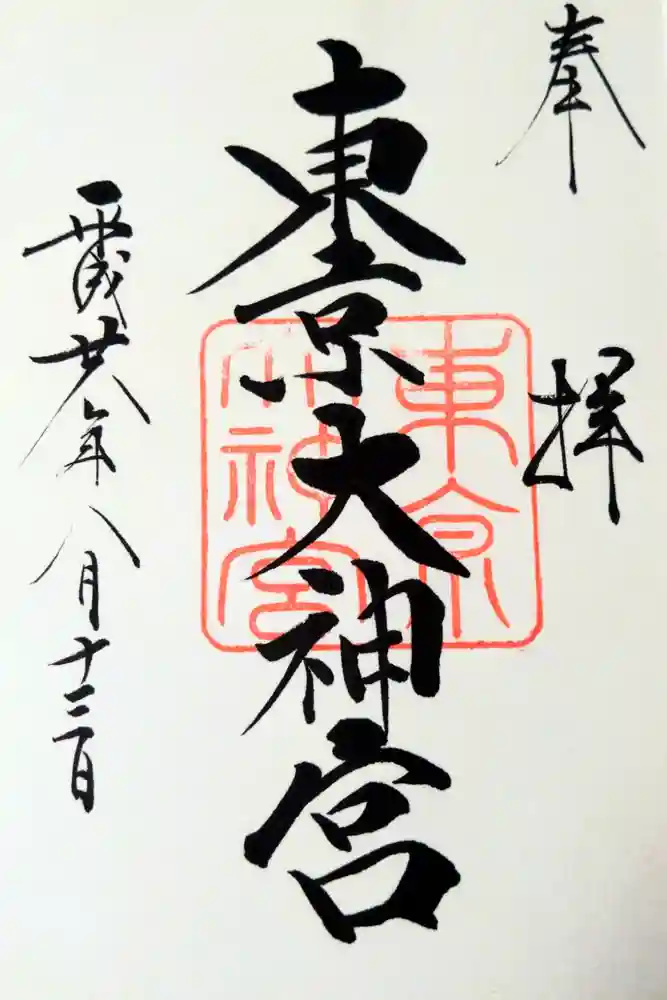 奉拝
東京大神宮
東京
大神宮
平成廿八年八月十三日